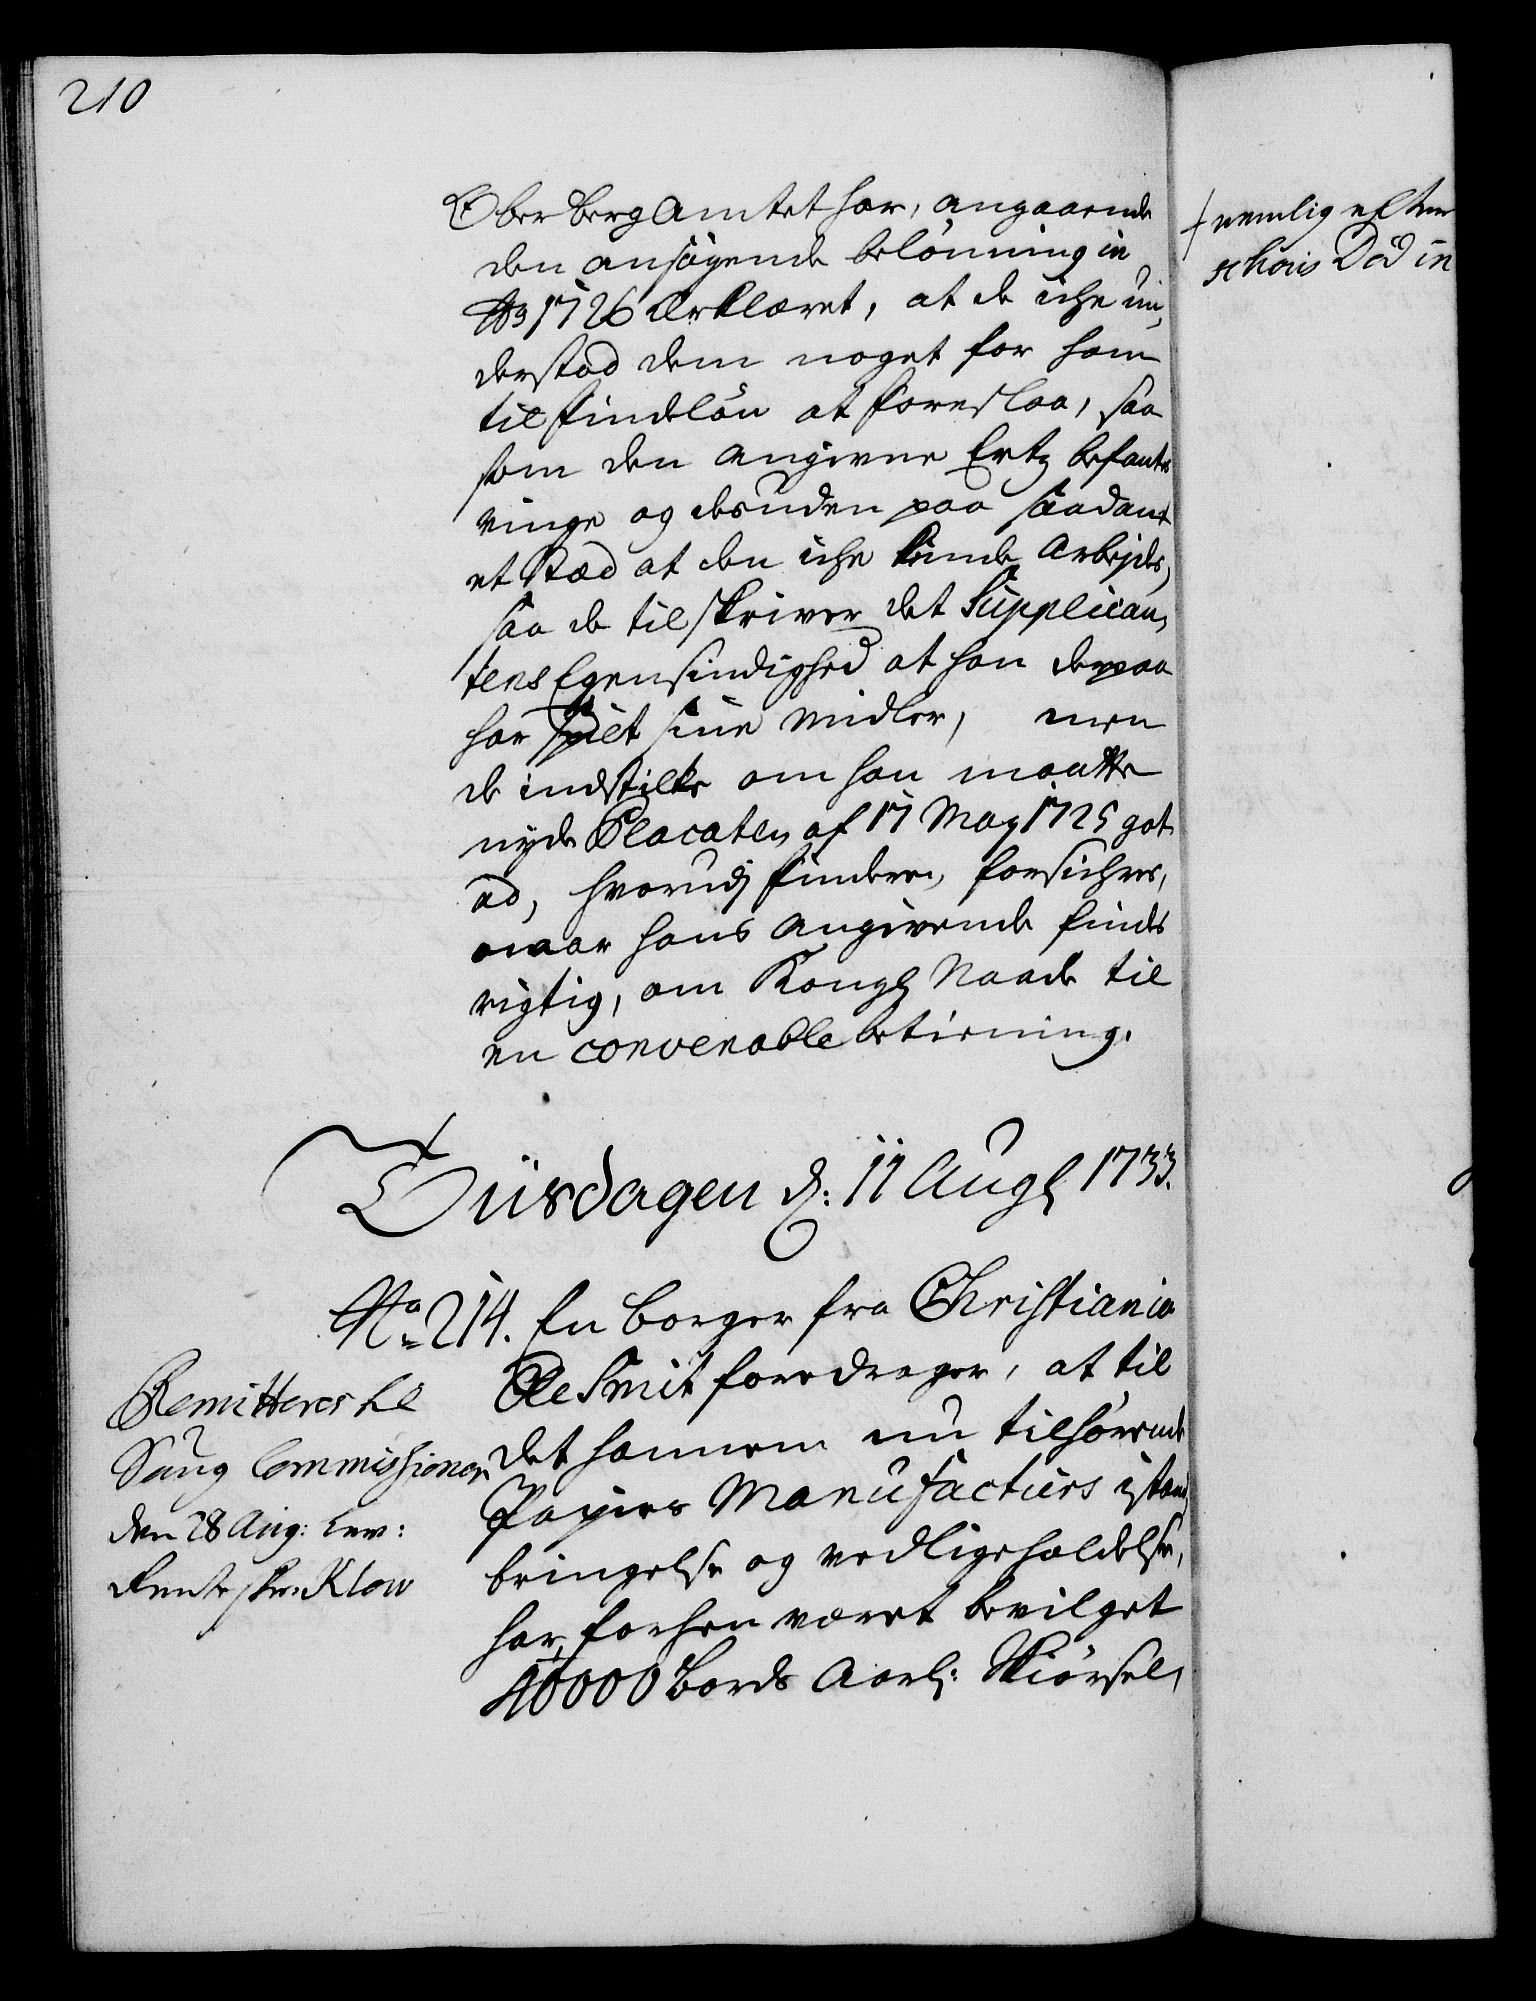 210
Ober Berg Amtet har, angaaende
den ansøgende belønning in
Ao 1726 Erklæret, at de iche un,
derstod dem noget for ham
til findeløn at foreslaa, saa
som den angivne Ertz befantes
ringe og desuden paa saadant
et Stæd at den iche kunde Arbejdes,
saa de tilskriver det Supplican,
tens Egensindighed at han derpaa
har spilt sine Midler, men
de indstilte om han maatte
nyde Placaten af 17 May 1725 got
ad, hvorudj finderen forsichres,
naar hans angivende findes
rigtig, om Kongl Naade til
en convenable betiening.
Tüsdagen d: 11 Augl 1733.
No 214. En borger fra Christiania
Ole Smit foredrager, at til
det hannem nu tilhørende
Papiers Manufacturs istand
bringelse og vedligeholdelse,
har forhen været bevilget
40000 Bords Aarl: Skiørsel,
Remitteres til
Saug Commissionen
den 28 Aug: Lev:
Renteskr: Klow
+ nemlig efter
hans Død in